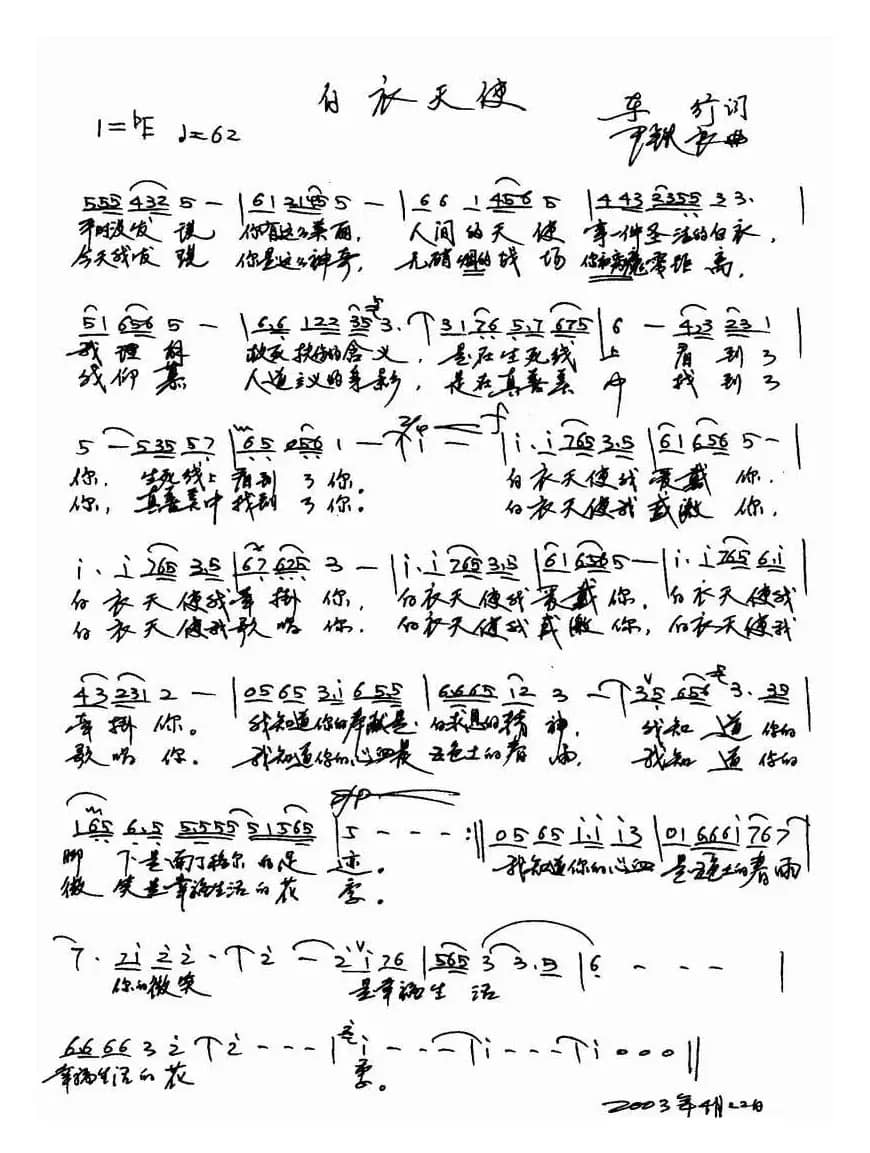 白衣天使
1=♭E ♩=62
车 行词
尹铁良曲
555 432 5 - | 61 2145 5 - | 66 1 456 5 | 443 2355 33. |
平时没发现 你有这么美丽, 人间的天使 穿一件圣洁的白衣,
今天我发现 你是这么神奇, 无硝烟的战场 你和病魔零距离,
51 656 5 - | 6.6 122 35 3. | 31 76 5.7 675 | 6 - 4.3 231 |
我理解 救死扶伤的含义, 是在生死线上 看到了
我仰慕 人道主义的身影, 是在真善美中 找到了
5 - 535 57 | 65 056 1 - | i - | i.i 765 3.5 | 61 656 5 - |
你, 生死线上看到了你. 白衣天使我爱戴你.
你, 真善美中找到了你。 白衣天使我感激你,
i.i 765 3.5 | 67 625 3 - | i.i 765 3.5 | 61 656 5 - | i.i 765 6.i |
白衣天使我牵挂你, 白衣天使我爱戴你, 白衣天使我
白衣天使我歌唱你. 白衣天使我感激你, 白衣天使我
43 231 2 - | 05 65 3.i 6 5.5 | 6.665 i2 3 - | 35 656 3. 35 |
牵挂你。 我知道你的奉献是 白求恩的精神, 我知道你的
歌唱你. 我知道你的心血是 五色土的春雨, 我知道你的
165 6.5 5.555 51565 | 5 - - - :|| 05 65 i.i i3 | 01 666i 767 |
脚下是南丁格尔的足迹. 我知道你的心血 是五色土的春雨
微笑是幸福生活的花季. 
7. 7i 2 2. | 2 - 2 i 76 | 565 3 3.5 | 6 - - - |
你的微笑 是幸福生活
6.6 66 3 2 | 2 - - - | i - - - | i - - - | i 000 ||
幸福生活的花季.
2003年4月22日